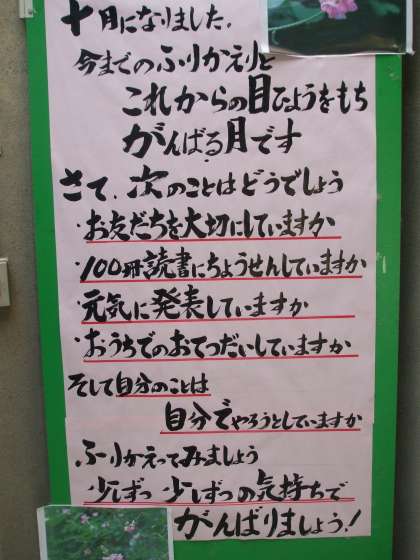 十月になりました。
今までのふりかえりと
これからの目ひょうをもち
がんばる月です
さて、次のことはどうでしょう
・お友だちを大切にしていますか
・100冊読書にちょうせんしていますか
・元気に発表していますか
・おうちでのおてつだいしていますか
そして自分のことは
自分でやろうとしていますか
ふりかえってみましょう
少しずつ 少しずつの気持ちで
がんばりましょう!